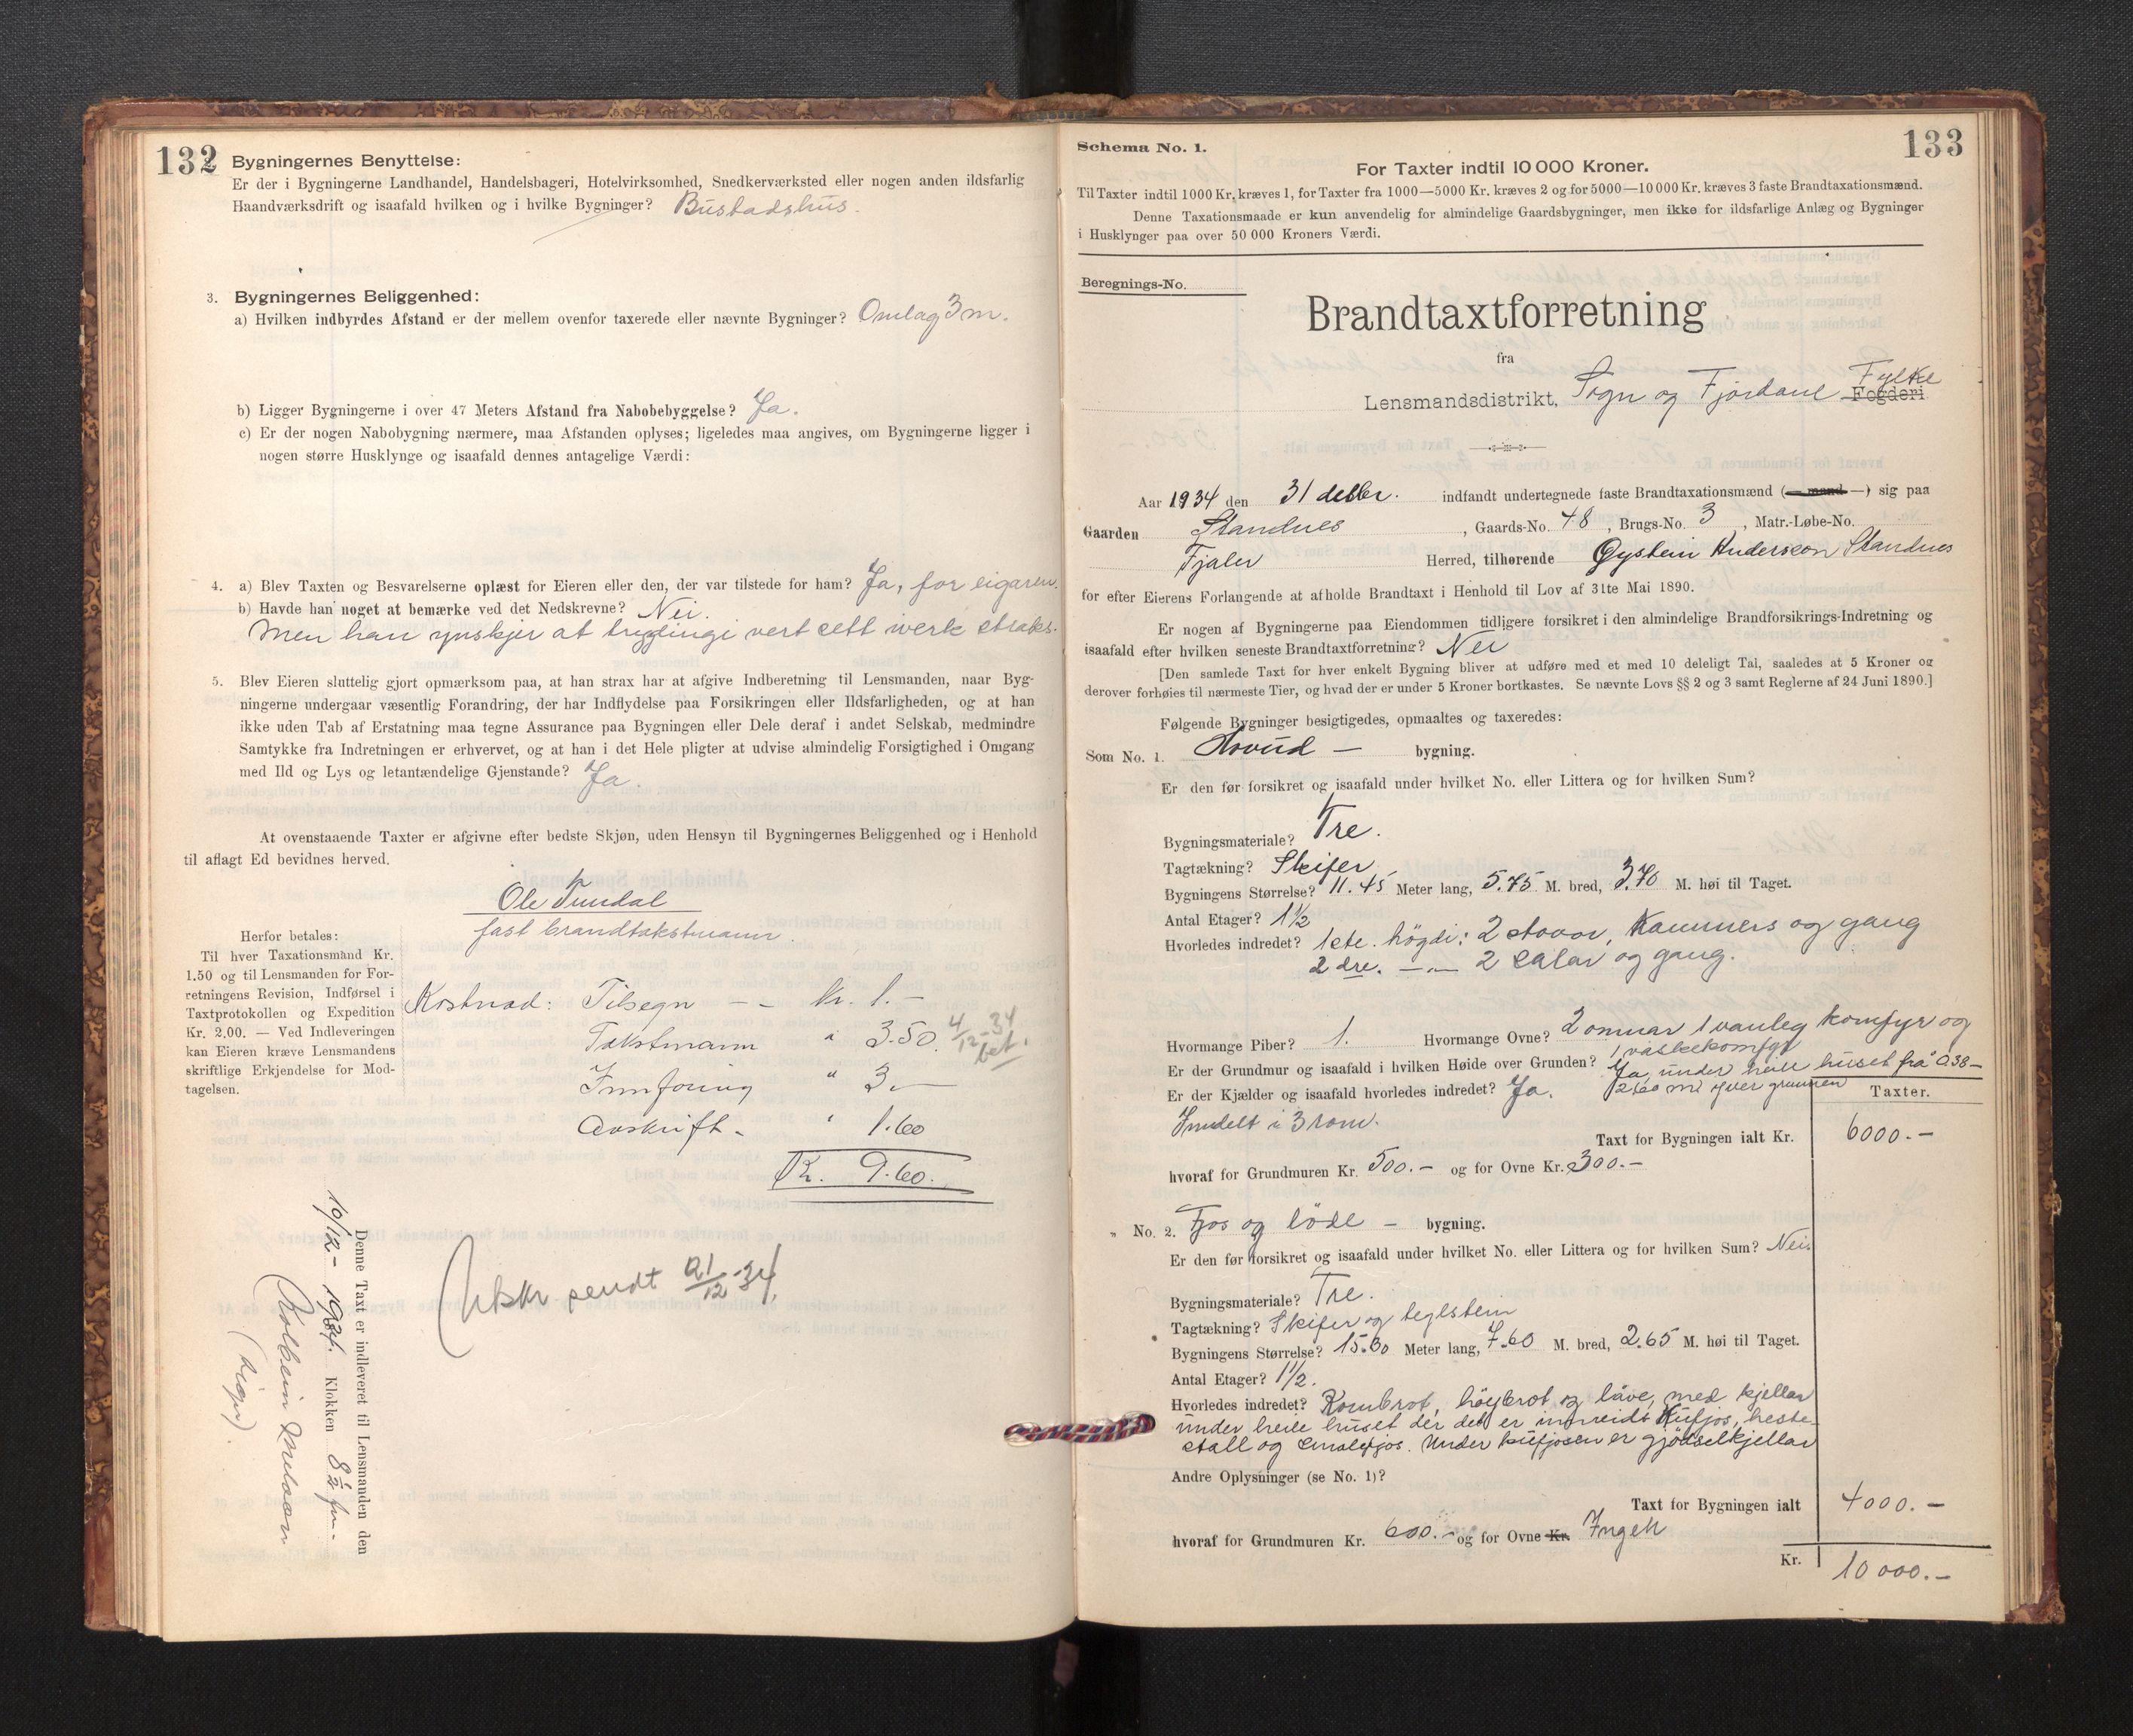 132
Bygningernes Benyttelse:
Er der i Bygningerne Landhandel, Handelsbageri, Hotelvirksomhed, Snedkerværksted eller nogen anden ildsfarlig
Haandværksdrift og isaafald hvilken og i hvilke Bygninger? Bustadshus.
3. Bygningernes Beliggenhed:
a) Hvilken indbyrdes Afstand er der mellem ovenfor taxerede eller nævnte Bygninger? Omlag 3 m.
b) Ligger Bygningerne i over 47 Meters Afstand fra Nabobebyggelse? Ja.
c) Er der nogen Nabobygning nærmere, maa Afstanden oplyses; ligeledes maa angives, om Bygningerne ligger i
nogen større Husklynge og isaafald dennes antagelige Værdi:
4. a) Blev Taxten og Besvarelserne oplæst for Eieren eller den, der var tilstede for ham? Ja, for eigaren.
b) Havde han noget at bemærke ved det Nedskrevne? Nei.
Men han ynskjer at trygdingi vert sett i verk straks.
5. Blev Eieren sluttelig gjort opmærksom paa, at han strax har at afgive Indberetning til Lensmanden, naar Byg-
ningerne undergaar væsentlig Forandring, der har Indflydelse paa Forsikringen eller Ildsfarligheden, og at han
ikke uden Tab af Erstatning maa tegne Assurance paa Bygningen eller Dele deraf i andet Selskab, medmindre
Samtykke fra Indretningen er erhvervet, og at han i det Hele pligter at udvise almindelig Forsigtighed i Omgang
med Ild og Lys og letantændelige Gjenstande? Ja
At ovenstaaende Taxter er afgivne efter bedste Skjøn, uden Hensyn til Bygningernes Beliggenhed og i Henhold
til aflagt Ed bevidnes herved.
Ole
fast brandtakstmann.
Herfor betales:
Til hver Taxationsmand Kr.
1.50 og til Lensmanden for For-
retningens Revision, Indførsel i
Taxtprotokollen og Expedition
Kr. 2.00. — Ved Indleveringen
kan Eieren kræve Lensmandens
skriftlige Erkjendelse for Mod-
tagelsen.
Kostnad: Tilsegn – – kr. 1.–
Takstmann " 3.50.
4/12-34 bet.
Innføring " 3.–
Avskrift – " 1.60
Kr. 9.60.
Denne Taxt er indleveret til Lensmanden den
10/12 – 1934. Klokken 8½ fm.
(sign)
Utskr. sendt 21/12-34.
133
Schema No. 1.
For Taxter indtil 10 000 Kroner.
Til Taxter indtil 1000 Kr. kræves 1, for Taxter fra 1000—5000 Kr. kræves 2 og for 5000—10 000 Kr. kræves 3 faste Brandtaxationsmænd.
Denne Taxationsmaade er kun anvendelig for almindelige Gaardsbygninger, men ikke for ildsfarlige Anlæg og Bygninger
i Husklynger paa over 50 000 Kroners Værdi.
Beregnings-No.
Brandtaxtforretning
fra
Lensmandsdistrikt, Sogn og Fjordane Fogderi Fylke
Aar 1934 den 31 indfandt undertegnede faste Brandtaxationsmænd (— mand —) sig paa
Gaarden Standnes, Gaards-No. 48, Brugs-No. 3, Matr.-Løbe-No.
Fjaler Herred, tilhørende Øystein Anderson Standnes
for efter Eierens Forlangende at afholde Brandtaxt i Henhold til Lov af 31te Mai 1890.
Er nogen af Bygningerne paa Eiendommen tidligere forsikret i den almindelige Brandforsikrings-Indretning og
isaafald efter hvilken seneste Brandtaxtforretning? Nei
[Den samlede Taxt for hver enkelt Bygning bliver at udføre med et med 10 deleligt Tal, saaledes at 5 Kroner og
derover forhøies til nærmeste Tier, og hvad der er under 5 Kroner bortkastes. Se nævnte Lovs §§ 2 og 3 samt Reglerne af 24 Juni 1890.]
Følgende Bygninger besigtigedes, opmaaltes og taxeredes:
Som No. 1. Hovud – bygning.
Er den før forsikret og isaafald under hvilket No. eller Littera og for hvilken Sum?
Bygningsmateriale? Tre.
Tagtækning? Skifer
Bygningens Størrelse? 11.45 Meter lang, 5.75 M. bred, 3.70 M. høi til Taget.
Antal Etager? 1½
Hvorledes indredet? 1ste. högdi: 2 stovor, Kammers og gang
2 dre. –"– 2 salar og gang.
Hvormange Piber? 1. Hvormange Ovne? 2 omnar 1 vanleg komfyr og
1 vaskekomfyr
Er der Grundmur og isaafald i hvilken Høide over Grunden? Ja, under heile huset frå 0.38–
2.60 m. yver grunnen
Er der Kjælder og isaafald hvorledes indredet? Ja.
Inndelt i 3 rom.
Taxter.
Taxt for Bygningen ialt Kr. 6000.–
hvoraf for Grundmuren Kr. 500.– og for Ovne Kr. 300.–
„ No. 2. Fjos og löde – bygning.
Er den før forsikret og isaafald under hvilket No. eller Littera og for hvilken Sum? Nei.
Bygningsmateriale? Tre.
Tagtækning? Skifer og teglstein
Bygningens Størrelse? 15.60 Meter lang, 7.60 M. bred, 2.65 M. høi til Taget.
Antal Etager? 1½.
Hvorledes indredet? Kornbrot, höybrot og låve, med kjellar
under heile huset der det er innreidt Kufjos, heste-
stall og smalefjos. Under kufjosen er gjödselkjellar
Andre Oplysninger (se No. 1)?
Taxt for Bygningen ialt 4000.–
hvoraf for Grundmuren Kr. 600.– og for Ovne Kr. Ingen
Kr. 10 000.–